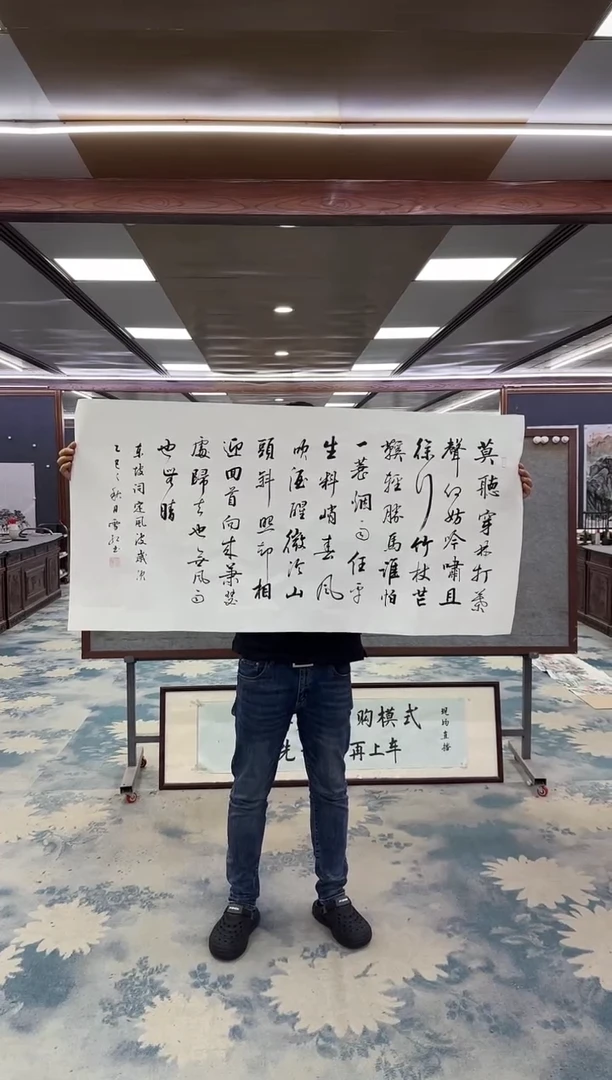 莫聽穿林打葉
聲何妨吟嘯且
徐行竹杖芒
鞵輕勝馬誰怕
一蓑烟雨任平
生料峭春风
吹酒醒微冷山
頭斜照却相
迎回首向来蕭瑟
處歸去也無风雨
也無晴
东坡词定风波
乙巳之秋月
购模式
先
再上车
现场直播